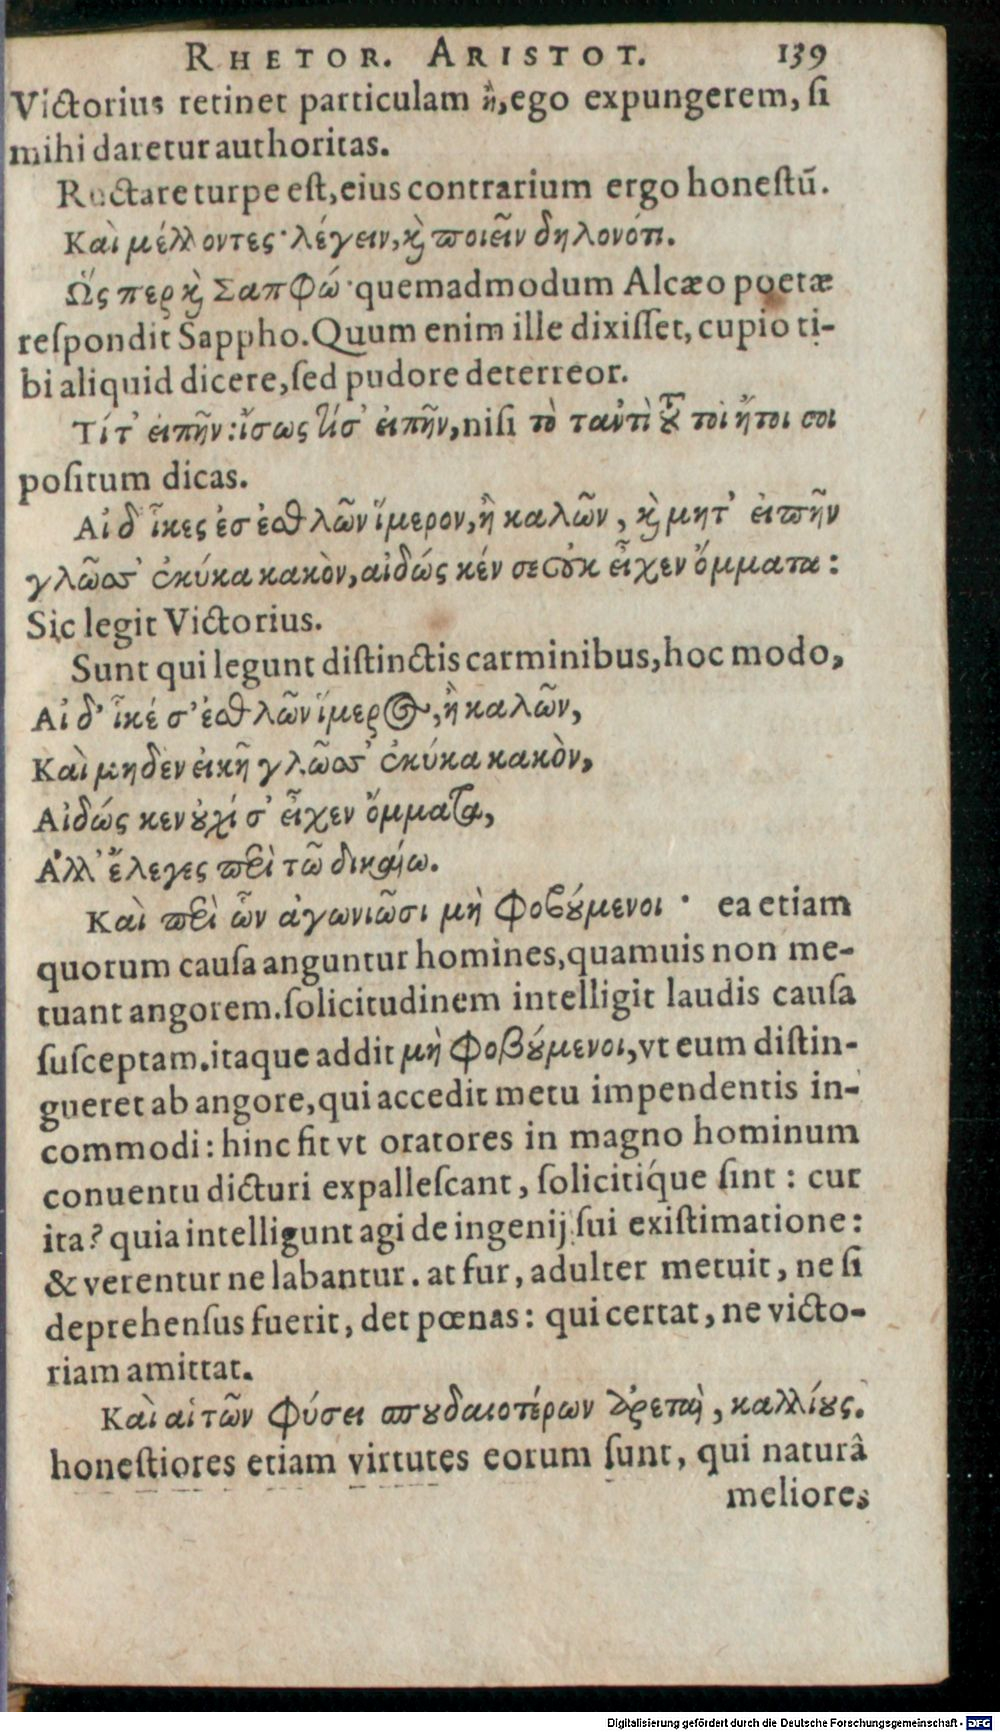 RHETOR. ARISTOT. 139
Victorius retinet particulam ἢ, ego expungerem, si
mihi daretur authoritas.
Ructare turpe est, eius contrarium ergo honestũ.
Καὶ μέλλοντες· λέγειν, καὶ ποιεῖν δηλονότι.
Ὥς περ καὶ Σαπφώ· quemadmodum Alcæo poetæ
respondit Sappho. Quum enim ille dixisset, cupio ti-
bi aliquid dicere, sed pudore deterreor.
Τί τ' εἰπῆν: ἴσως τί σ' εἰπῆν, nisi τὸ ταὐτὶ τοῦ τοὶ ἤτοι σοι
positum dicas.
Αἰ δ' ἷκες ἐσ ἐσθλῶν ἵμερον, ἢ καλῶν, καὶ μητ' εἰπῆν
γλῶσσ' ἐκύκα κακὸν, αἰδώς κέν σε οὐκ εἶχεν ὄμματα:
Sic legit Victorius.
Sunt qui legunt distinctis carminibus, hoc modo,
Αἰ δ' ἷκέ σ' ἐσθλῶν ἵμερος, ἢ καλῶν,
Καὶ μηδεν εἰκῆ γλῶσσ' ἐκύκα κακὸν,
Αἰδώς κεν οὐχί σ' εἶχεν ὄμματα,
Αλλ' ἔλεγες περὶ τῶ δικαίω.
Καὶ περὶ ὧν ἀγωνιῶσι μὴ φοβούμενοι · ea etiam
quorum causa anguntur homines, quamuis non me-
tuant angorem. solicitudinem intelligit laudis causa
susceptam. itaque addit μὴ φοβούμενοι, vt eum distin-
gueret ab angore, qui accedit metu impendentis in-
commodi: hinc fit vt oratores in magno hominum
conuentu dicturi expallescant, solicitiq́ue sint: cur
ita? quia intelligunt agi de ingenij sui existimatione:
& verentur ne labantur. at fur, adulter metuit, ne si
deprehensus fuerit, det pœnas: qui certat, ne victo-
riam amittat.
Καὶ αἱ τῶν φύσει σπουδαιοτέρων ἀρεταὶ, καλλίους.
honestiores etiam virtutes eorum sunt, qui naturâ
meliores
Digitalisierung gefördert durch die Deutsche Forschungsgemeinschaft - DFG